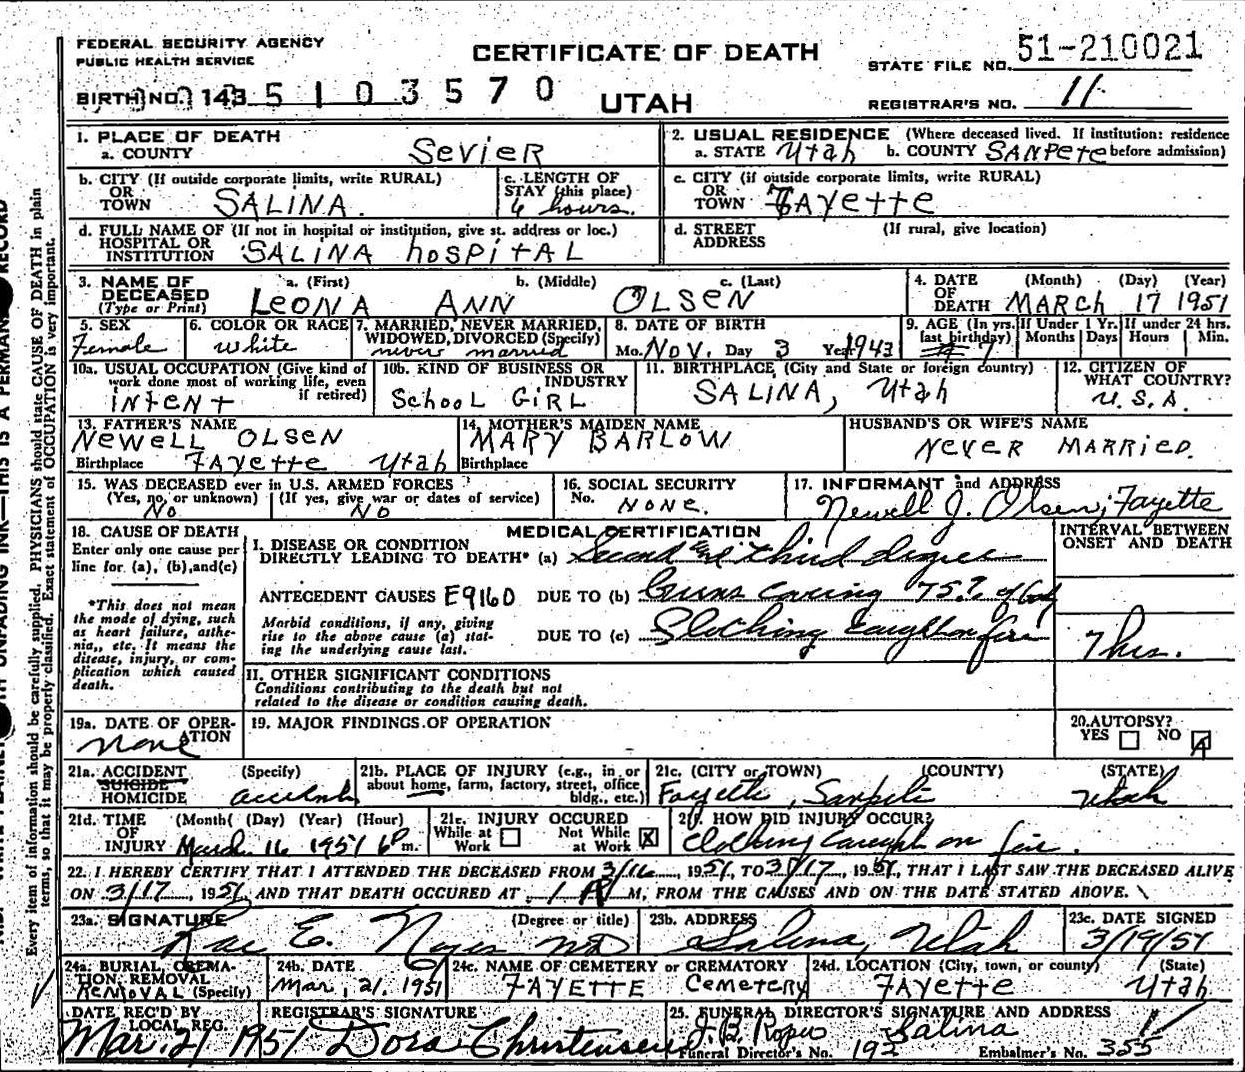 FEDERAL SECURITY AGENCY
PUBLIC HEALTH SERVICE
CERTIFICATE OF DEATH
STATE FILE NO. 51-210021
BIRTH NO. 143 5 1 0 3 5 7 0
UTAH
REGISTRAR'S NO. 11
1. PLACE OF DEATH
a. COUNTY SEVIER
2. USUAL RESIDENCE (Where deceased lived. If institution: residence
a. STATE Utah b. COUNTY SANPETE before admission)
b. CITY (If outside corporate limits, write RURAL)
OR
TOWN SALINA.
c. LENGTH OF
STAY (this place)
6 hours.
c. CITY (if outside corporate limits, write RURAL)
OR
TOWN FAYETTE
d. FULL NAME OF (If not in hospital or institution, give st. address or loc.)
HOSPITAL OR
INSTITUTION SALINA hOSPITAL
d. STREET (If rural, give location)
ADDRESS
3. NAME OF
DECEASED
(Type or Print)
a. (First) b. (Middle) c. (Last)
LEONA ANN OLSEN
4. DATE (Month) (Day) (Year)
OF
DEATH MARCH 17 1951
5. SEX
Female
6. COLOR OR RACE
White
7. MARRIED, NEVER MARRIED,
WIDOWED, DIVORCED (Specify)
never married
8. DATE OF BIRTH
Mo. NOV. Day 3 Year 1943
9. AGE (In yrs. last birthday) 7
If Under 1 Yr. Months Days
If under 24 hrs. Hours Min.
10a. USUAL OCCUPATION (Give kind of
work done most of working life, even
if retired)
INFENT
10b. KIND OF BUSINESS OR
INDUSTRY
School GIRL
11. BIRTHPLACE (City and State or foreign country)
SALINA, Utah
12. CITIZEN OF
WHAT COUNTRY?
U.S.A.
13. FATHER'S NAME
NEWELL OLSEN
Birthplace FAYETTE Utah
14. MOTHER'S MAIDEN NAME
MARY BARLOW
Birthplace
HUSBAND'S OR WIFE'S NAME
NEVER MARRIED.
15. WAS DECEASED ever in U.S. ARMED FORCES?
(Yes, no, or unknown) (If yes, give war or dates of service)
No NO
16. SOCIAL SECURITY
No. NONE.
17. INFORMANT and ADDRESS
Newell J. Olsen, Fayette
18. CAUSE OF DEATH
Enter only one cause per
line for (a), (b), and (c)
*This does not mean
the mode of dying, such
as heart failure, asthe-
nia, etc. It means the
disease, injury, or com-
plication which caused
death.
MEDICAL CERTIFICATION
INTERVAL BETWEEN
ONSET AND DEATH
I. DISEASE OR CONDITION
DIRECTLY LEADING TO DEATH* (a) Second and third degree
ANTECEDENT CAUSES E9160 DUE TO (b) Burns covering 75% of body
Morbid conditions, if any, giving
rise to the above cause (a) stat-
ing the underlying cause last.
DUE TO (c) Clothing caught on fire
7 hrs.
II. OTHER SIGNIFICANT CONDITIONS
Conditions contributing to the death but not
related to the disease or condition causing death.
19a. DATE OF OPER-
ATION
none
19. MAJOR FINDINGS OF OPERATION
20. AUTOPSY?
YES NO
21a. ACCIDENT (Specify)
SUICIDE
HOMICIDE accident
21b. PLACE OF INJURY (e.g., in or
about home, farm, factory, street, office
bldg., etc.)
21c. (CITY or TOWN) (COUNTY) (STATE)
Fayette, Sanpete Utah
21d. TIME (Month) (Day) (Year) (Hour)
OF
INJURY March 16 1951 6 P m.
21e. INJURY OCCURED
While at Work Not While at Work X
21f. HOW DID INJURY OCCUR?
Clothing caught on fire.
22. I HEREBY CERTIFY THAT I ATTENDED THE DECEASED FROM 3/16, 1951, TO 3/17, 1951, THAT I LAST SAW THE DECEASED ALIVE
ON 3/17, 1951, AND THAT DEATH OCCURED AT 1 A M, FROM THE CAUSES AND ON THE DATE STATED ABOVE.
23a. SIGNATURE (Degree or title)
Rae E. Noyes MD
23b. ADDRESS
Salina, Utah
23c. DATE SIGNED
3/19/51
24a. BURIAL, CREMA-
TION, REMOVAL
REMOVAL (Specify)
24b. DATE
Mar. 21, 1951
24c. NAME OF CEMETERY or CREMATORY
FAYETTE Cemetery
24d. LOCATION (City, town, or county) (State)
FAYETTE Utah
DATE REC'D BY
LOCAL REG.
Mar. 21 1951
REGISTRAR'S SIGNATURE
Dora Christensen
25. FUNERAL DIRECTOR'S SIGNATURE AND ADDRESS
J. B. Roper Salina
Funeral Director's No. 192 Embalmer's No. 355
Every item of information should be carefully supplied. PHYSICIANS should state CAUSE OF DEATH in plain
terms, so that it may be properly classified. Exact statement of OCCUPATION is very important.
UNFADING INK—THIS IS A PERMANENT RECORD